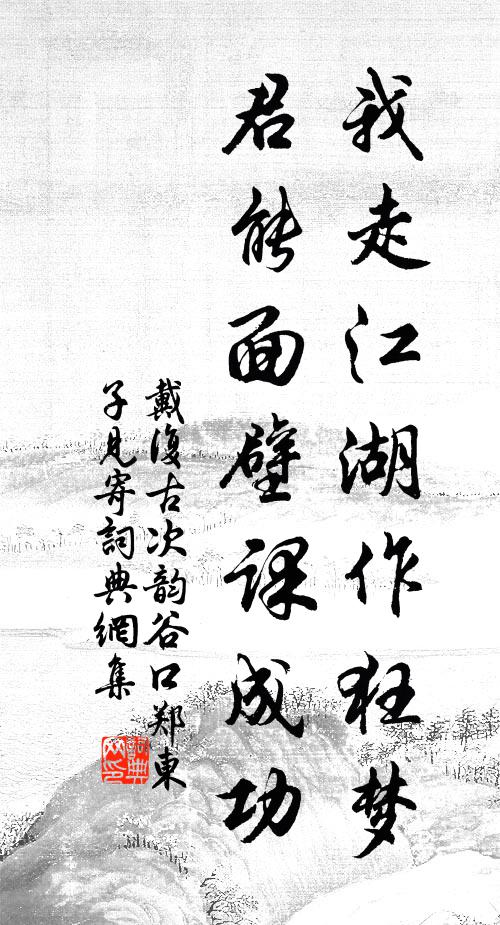 我走江湖作狂梦
君能面壁课成功
戴復古次韵谷口郑東
子見寄詞典網集
詞典